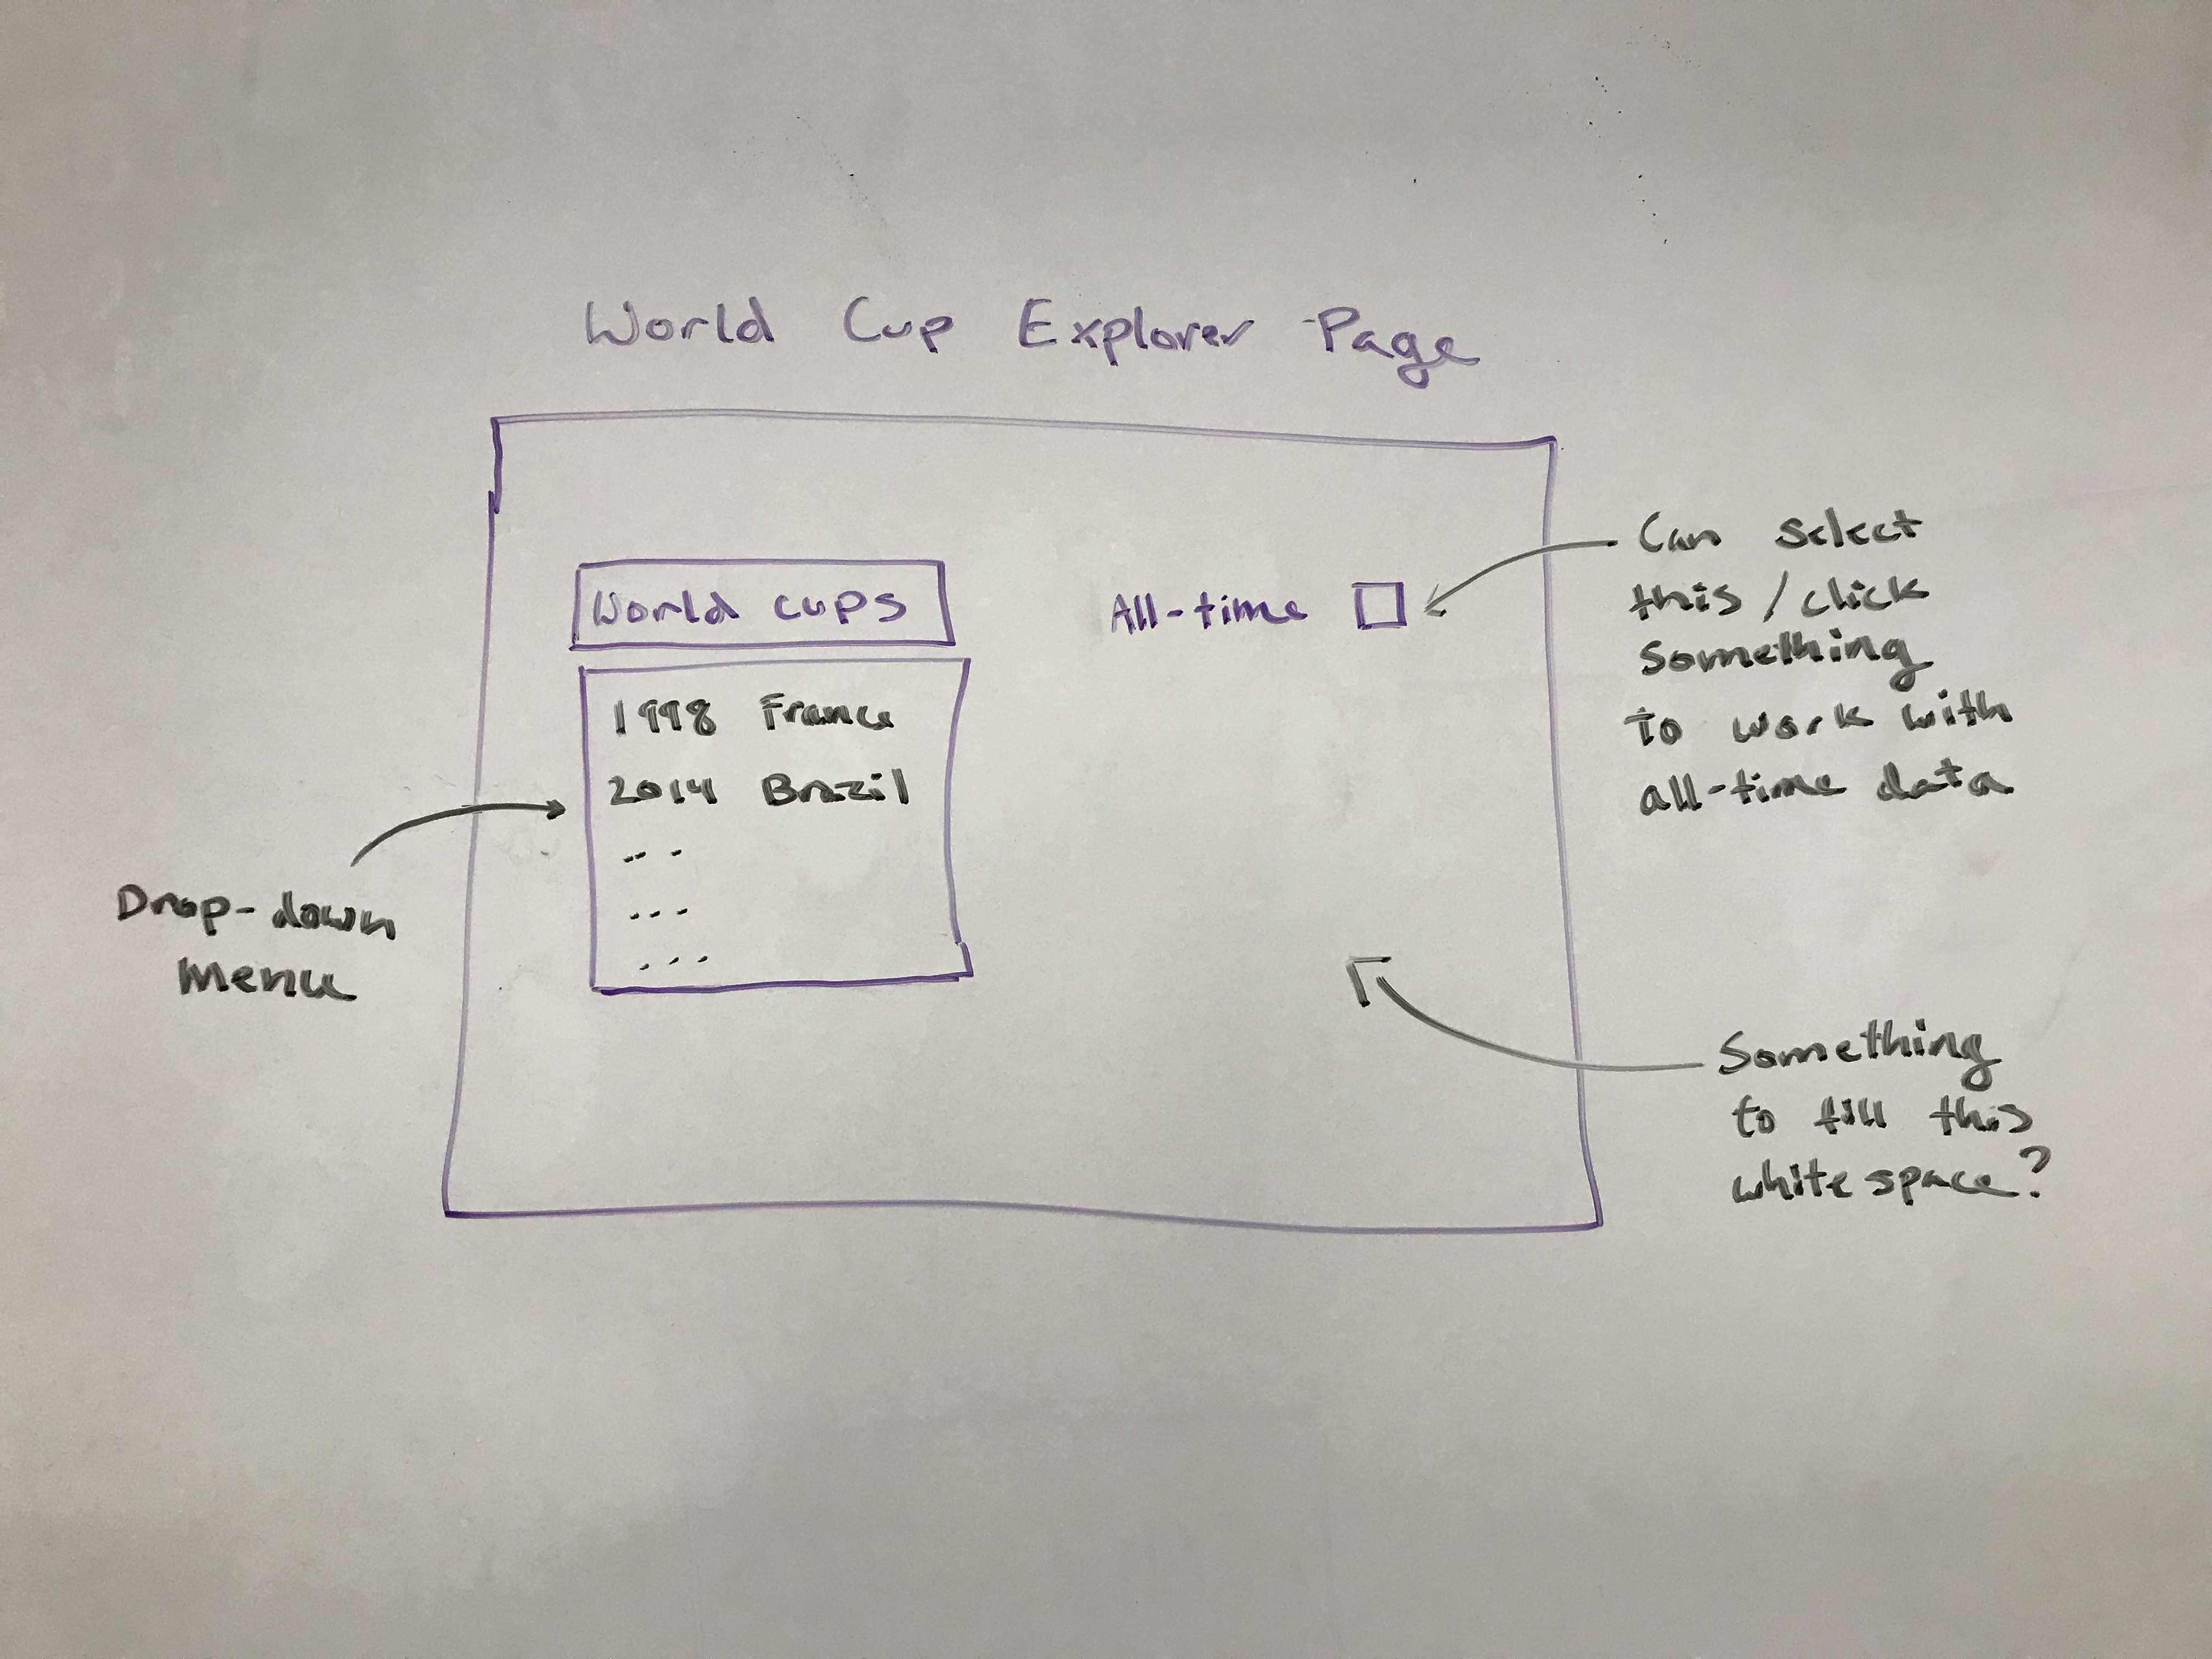 World Cup Explorer Page
World cups
1998 France
2014 Brazil
...
...
...
All-time
Can select
this / click
something
to work with
all-time data
Drop-down
menu
Something
to fill this
white space?